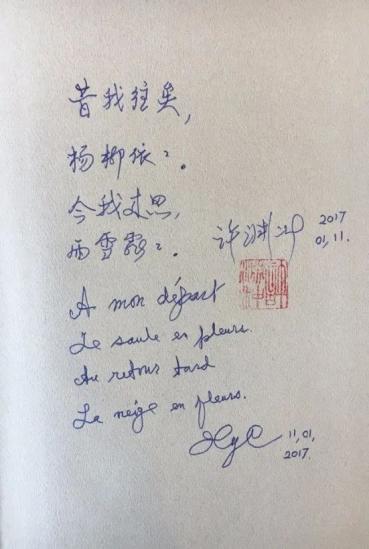 昔我往矣，
杨柳依〻。
今我来思，
雨雪霏〻。
许渊冲
2017
01,11.
A mon départ
Le saule en pleurs.
Au retour tard
La neige en fleurs.
XyC
11,01,
2017.